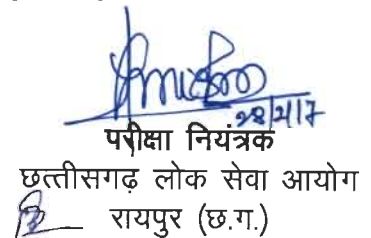 28/2/17
परीक्षा नियंत्रक
छत्तीसगढ़ लोक सेवा आयोग
रायपुर (छ.ग.)